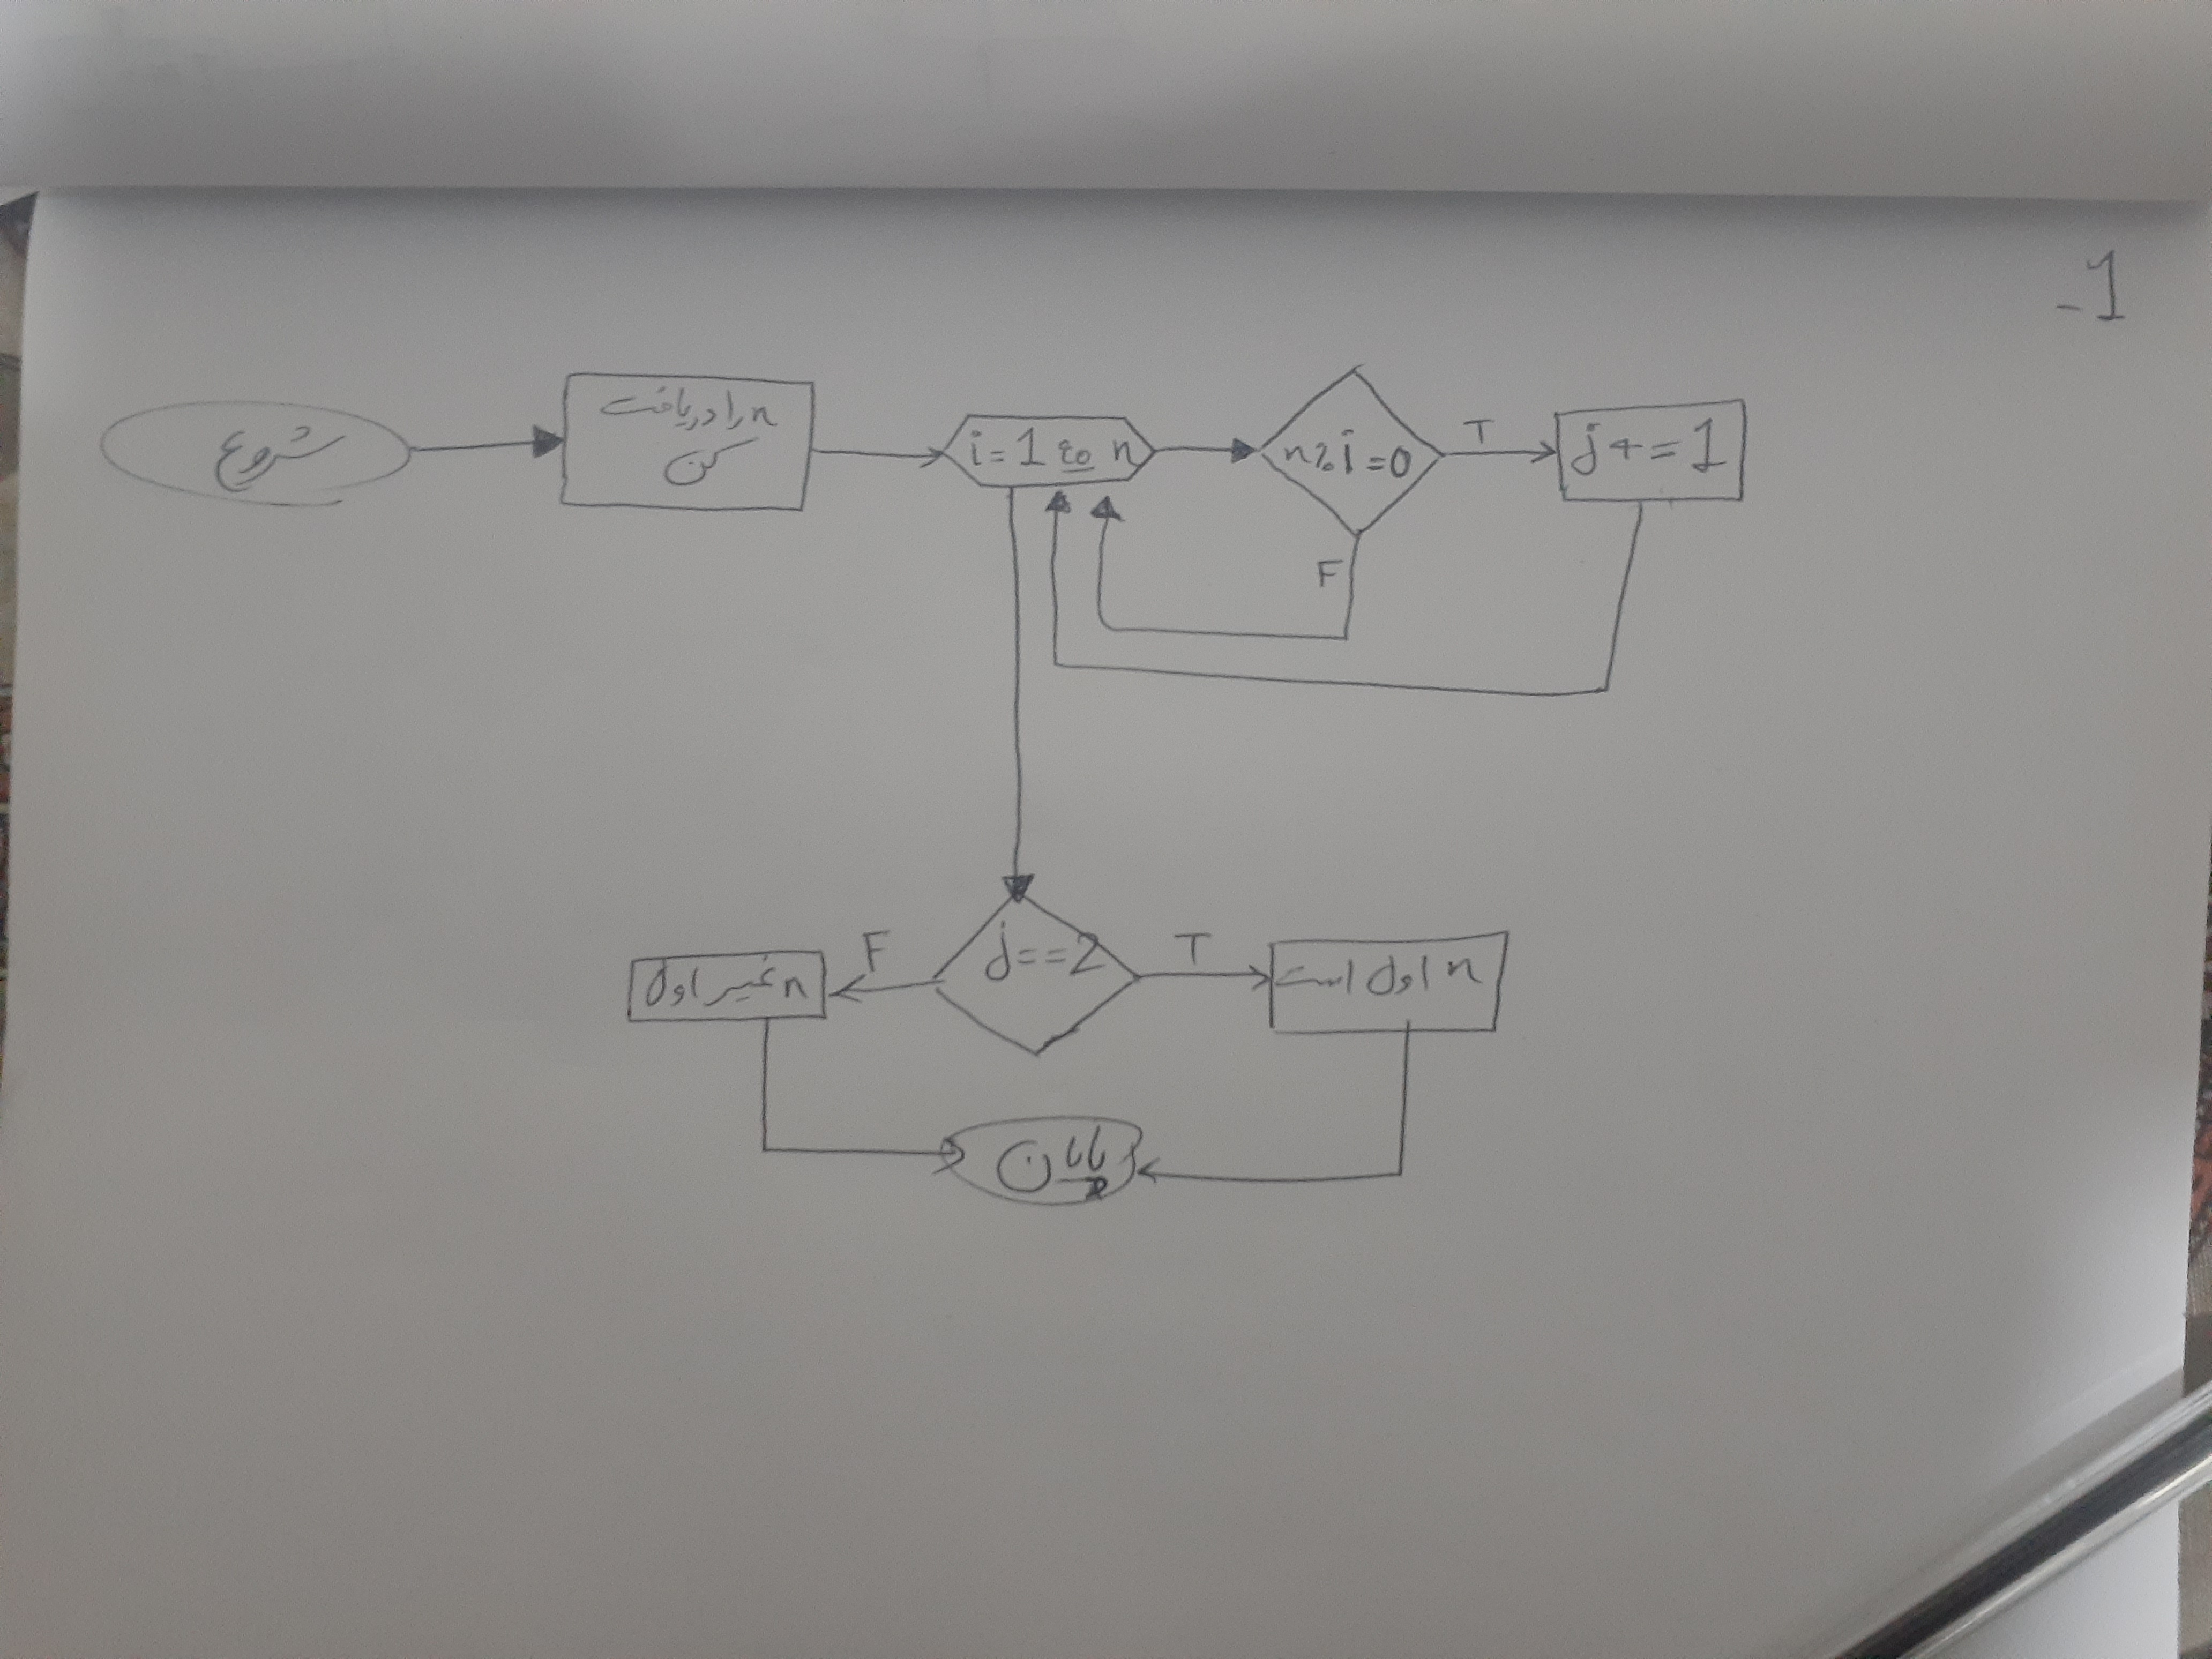 1-
شروع
n را دریافت
کن
i = 1 to n
n % i = 0
T
j + = 1
F
j = = 2
T
n اول است
F
n غیر اول
پایان